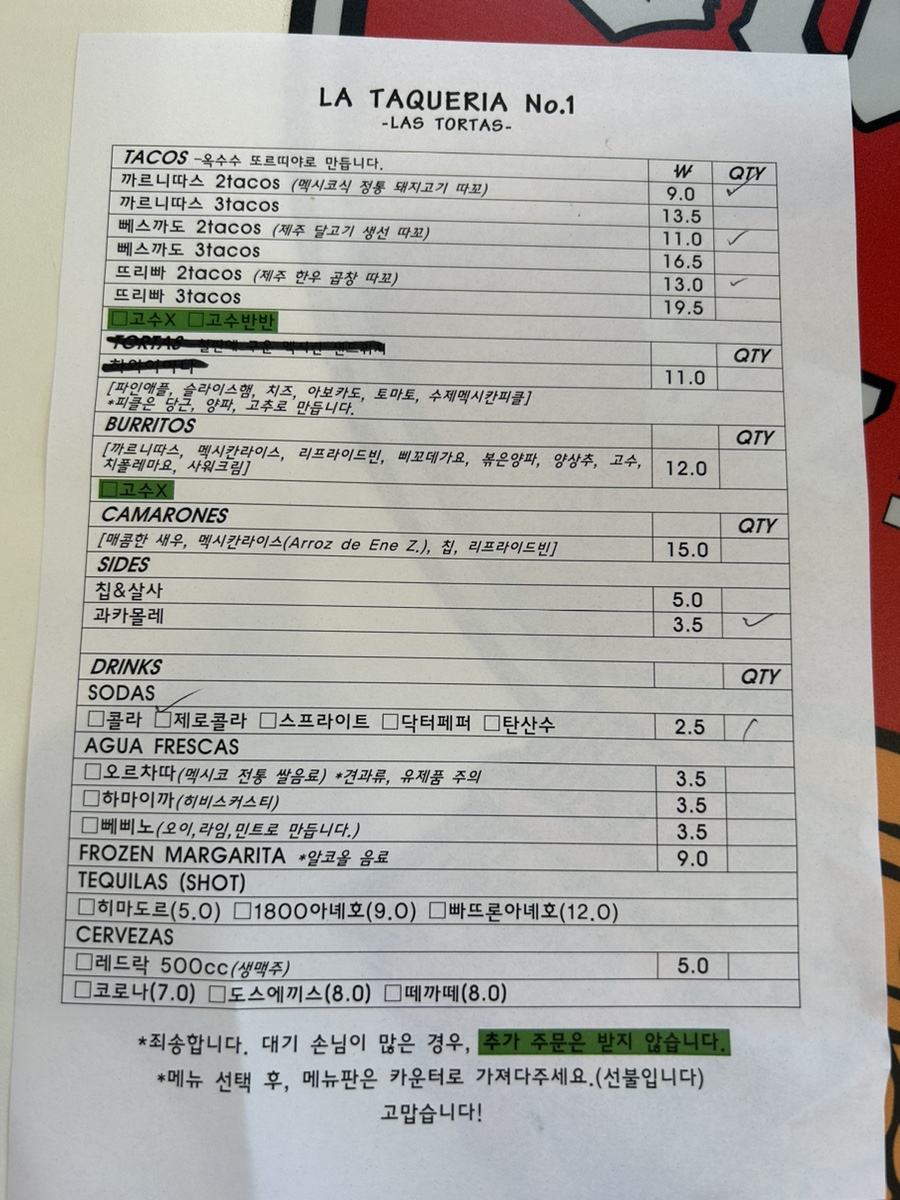 LA TAQUERIA No.1
-LAS TORTAS-
TACOS -옥수수 또르띠야로 만듭니다. ₩ QTY
까르니따스 2tacos (멕시코식 정통 돼지고기 따꼬) 9.0 ✓
까르니따스 3tacos 13.5
뻬스까도 2tacos (제주 달고기 생선 따꼬) 11.0 ✓
뻬스까도 3tacos 16.5
뜨리빠 2tacos (제주 한우 곱창 따꼬) 13.0 ✓
뜨리빠 3tacos 19.5
□고수X □고수반반
TORTAS QTY
11.0
[파인애플, 슬라이스햄, 치즈, 아보카도, 토마토, 수제멕시칸피클]
*피클은 당근, 양파, 고추로 만듭니다.
BURRITOS QTY
[까르니따스, 멕시칸라이스, 리프라이드빈, 삐꼬데가요, 볶은양파, 양상추, 고수,
치폴레마요, 사워크림] 12.0
□고수X
CAMARONES QTY
[매콤한 새우, 멕시칸라이스(Arroz de Ene Z.), 칩, 리프라이드빈] 15.0
SIDES
칩&살사 5.0
과카몰레 3.5 ✓
DRINKS QTY
SODAS
□콜라 ☑제로콜라 □스프라이트 □닥터페퍼 □탄산수 2.5 /
AGUA FRESCAS
□오르차따(멕시코 전통 쌀음료) *견과류, 유제품 주의 3.5
□하마이까(히비스커스티) 3.5
□뻬삐노(오이,라임,민트로 만듭니다.) 3.5
FROZEN MARGARITA *알코올 음료 9.0
TEQUILAS (SHOT)
□히마도르(5.0) □1800아녜호(9.0) □빠뜨론아녜호(12.0)
CERVEZAS
□레드락 500cc(생맥주) 5.0
□코로나(7.0) □도스에끼스(8.0) □떼까떼(8.0)
*죄송합니다. 대기 손님이 많은 경우, 추가 주문은 받지 않습니다.
*메뉴 선택 후, 메뉴판은 카운터로 가져다주세요.(선불입니다)
고맙습니다!